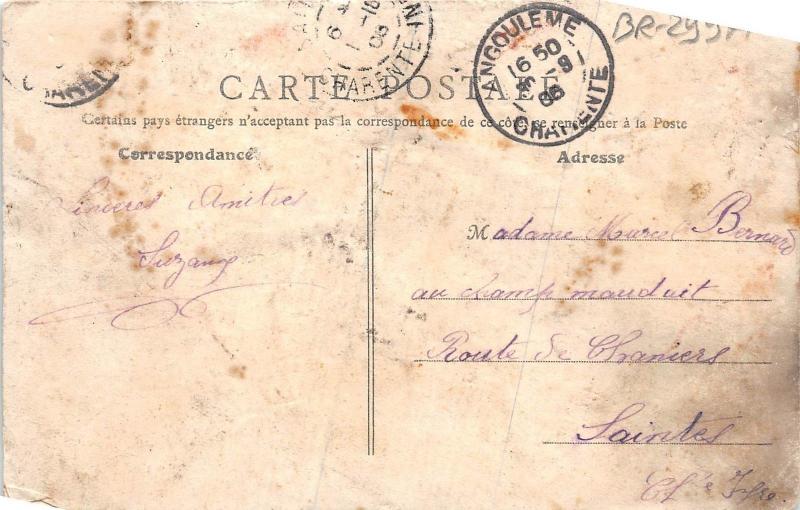 BR-299
ANGOULEME
16 50
CHARENTE
CHARENTE
CARTE POSTALE
Certains pays étrangers n'acceptant pas la correspondance de ce côté, se renseigner à la Poste
Correspondance
Adresse
Sincères Amitiés
Suzanne
Madame Marcel Bernard
au champ mauduit
Route de Chaniers
Saintes
Ch. te Infre.